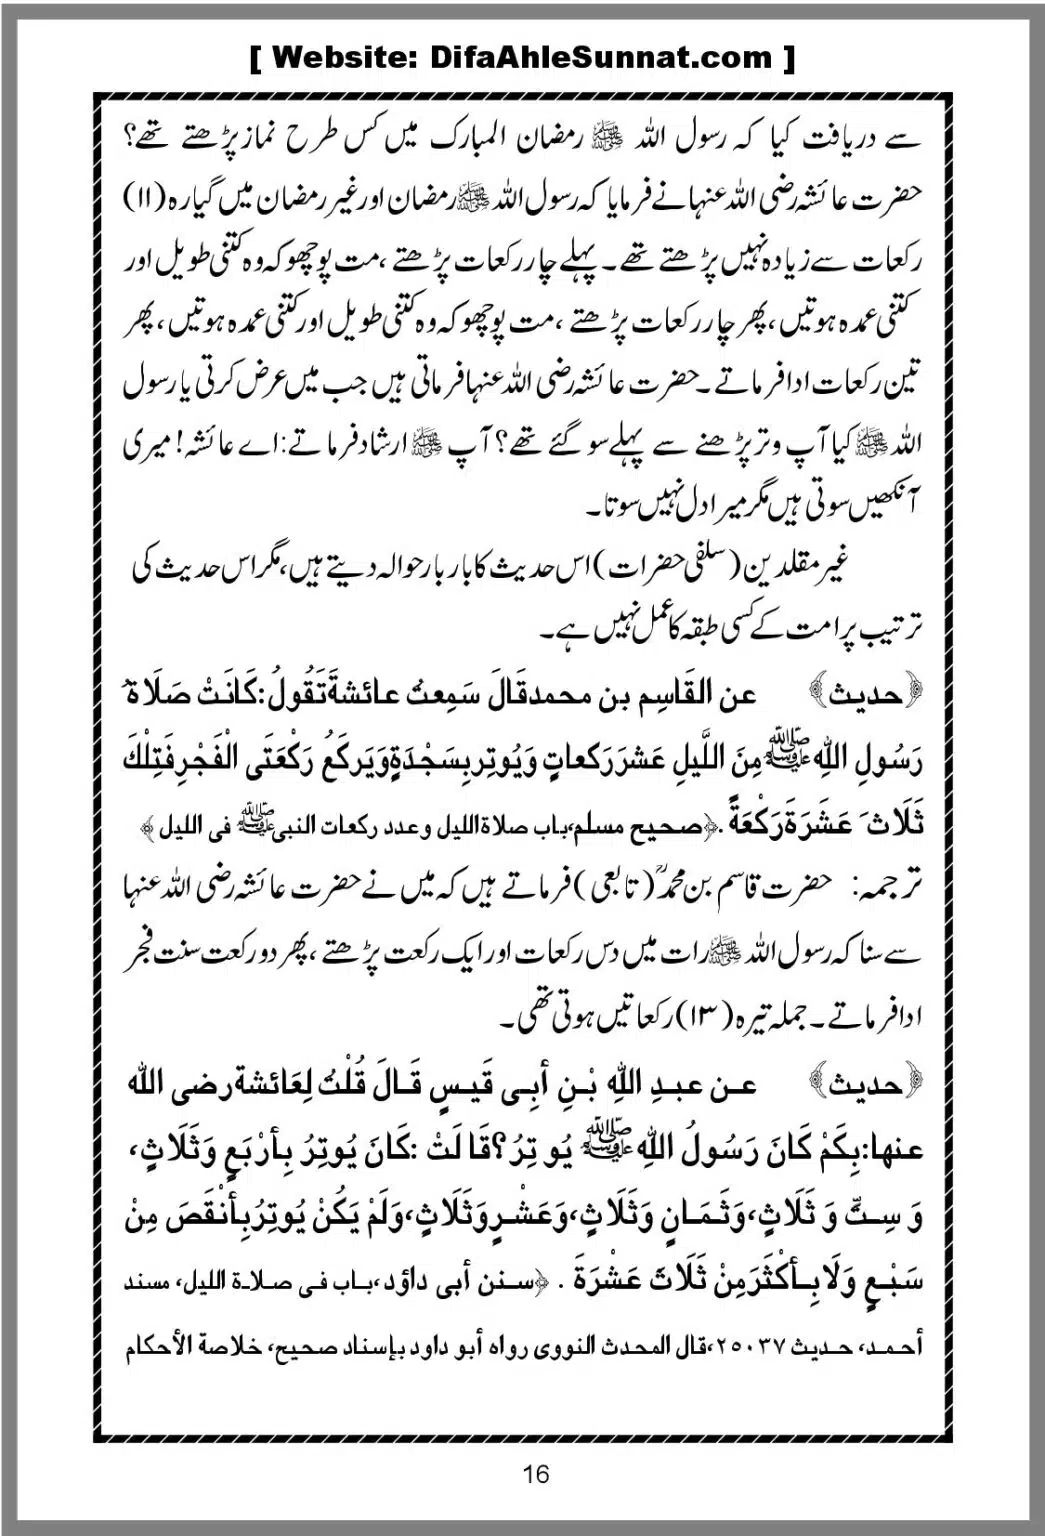 [ Website: DifaAhleSunnat.com ]
سے دریافت کیا کہ رسول اللہ ﷺ رمضان المبارک میں کس طرح نماز پڑھتے تھے؟
حضرت عائشہ رضی اللہ عنہا نے فرمایا کہ رسول اللہ ﷺ رمضان اور غیر رمضان میں گیارہ (۱۱)
رکعات سے زیادہ نہیں پڑھتے تھے۔ پہلے چار رکعات پڑھتے، مت پوچھو کہ وہ کتنی طویل اور
کتنی عمدہ ہوتیں، پھر چار رکعات پڑھتے، مت پوچھو کہ وہ کتنی طویل اور کتنی عمدہ ہوتیں، پھر
تین رکعات ادا فرماتے۔ حضرت عائشہ رضی اللہ عنہا فرماتی ہیں جب میں عرض کرتی یا رسول
اللہ ﷺ کیا آپ وتر پڑھنے سے پہلے سو گئے تھے؟ آپ ﷺ ارشاد فرماتے: اے عائشہ! میری
آنکھیں سوتی ہیں مگر میرا دل نہیں سوتا۔
غیر مقلدین (سلفی حضرات) اس حدیث کا بار بار حوالہ دیتے ہیں، مگر اس حدیث کی
ترتیب پر امت کے کسی طبقہ کا عمل نہیں ہے۔
﴿حدیث﴾ عن القَاسِم بن محمد قَالَ سَمِعتُ عائشةَ تَقُولُ: كَانَتْ صَلَاةُ
رَسُولِ اللّٰهِ ﷺ مِنَ اللَّيلِ عَشرَ رَكعاتٍ وَيُوتِر بِسَجْدَةٍ وَيَركَعُ رَكْعَتَى الْفَجْرِ فَتِلْكَ
ثَلَاثَ عَشَرَةَ رَكْعَةً. ﴿صحیح مسلم، باب صلاة اللیل وعدد رکعات النبی ﷺ فی اللیل﴾
ترجمہ: حضرت قاسم بن محمدؒ (تابعی) فرماتے ہیں کہ میں نے حضرت عائشہ رضی اللہ عنہا
سے سنا کہ رسول اللہ ﷺ رات میں دس رکعات اور ایک رکعت پڑھتے، پھر دو رکعت سنت فجر
ادا فرماتے۔ جملہ تیرہ (۱۳) رکعاتیں ہوتی تھی۔
﴿حدیث﴾ عن عبدِ اللّٰهِ بْنِ أبِى قَيسٍ قَالَ قُلْتُ لِعَائشة رضى الله
عنها: بِكَمْ كَانَ رَسُولُ اللّٰهِ ﷺ يُوتِرُ؟ قَالَتْ: كَانَ يُوتِرُ بِأرْبَعٍ وَثَلَاثٍ،
وَ سِتٍّ وَ ثَلَاثٍ، وَثَمَانٍ وَثَلَاثٍ، وَعَشْرٍ وَثَلَاثٍ، وَلَمْ يَكُنْ يُوتِرُ بِأنْقَصَ مِنْ
سَبْعٍ وَلَا بِأكْثَرَ مِنْ ثَلَاثَ عَشْرَةَ. ﴿سنن أبی داؤد، باب فی صلاة اللیل، مسند
أحمد، حدیث ۲۵۰۳۷، قال المحدث النووی رواه أبو داود بإسناد صحیح، خلاصة الأحکام
16